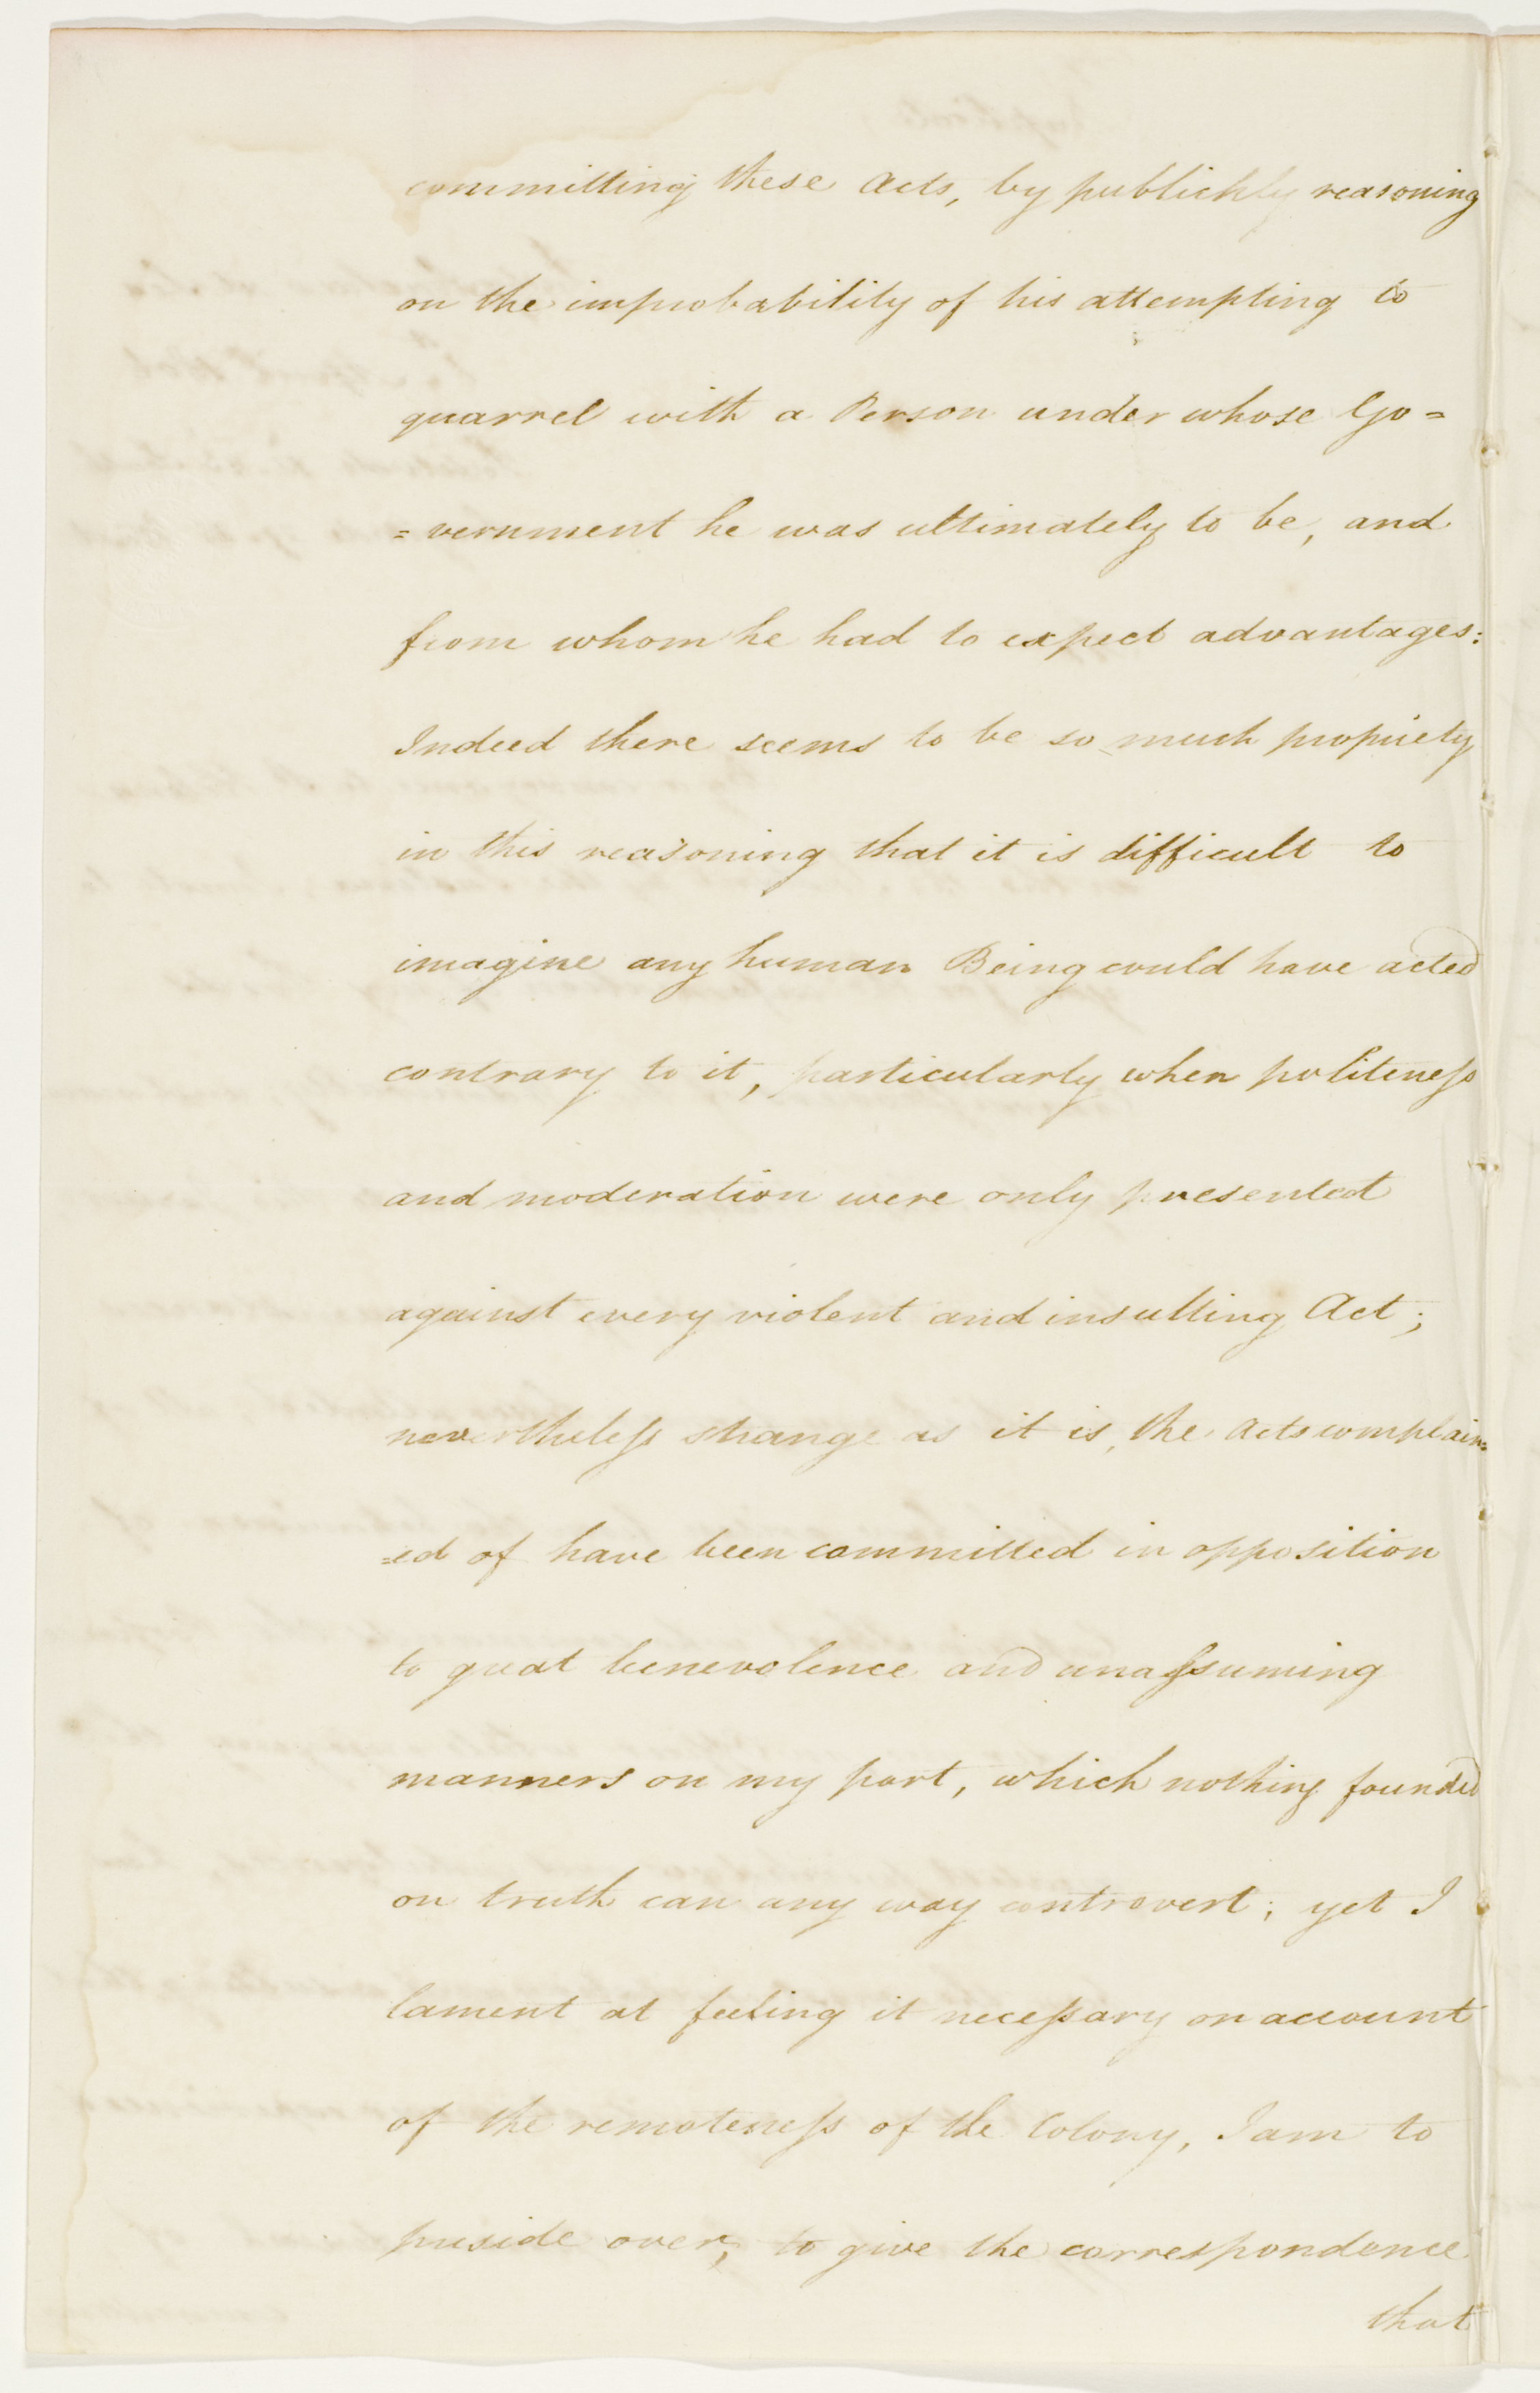 committing these Acts, by publickly reasoning
on the improbability of his attempting to
quarrel with a Person under whose Go=
=vernment he was ultimately to be, and
from whom he had to expect advantages:
Indeed there seems to be so much propriety
in this reasoning that it is difficult to
imagine any human Being could have acted
contrary to it, particularly when politeness
and moderation were only presented
against every violent and insulting Act;
nevertheless strange as it is, the Acts complain=
=ed of have been committed in opposition
to great benevolence and unassuming
manners on my part, which nothing founded
on truth can any way controvert; yet I
lament at feeling it necessary on account
of the remoteness of the Colony, I am to
preside over, to give the correspondence
that